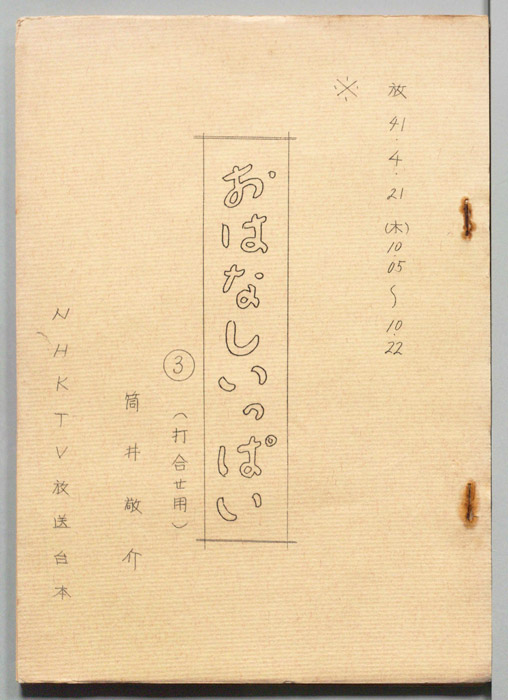 放 41.4.21(木)10.05〜10.22
※
おはなしいっぱい
③(打合せ用)
筒井敬介
NHKTV放送台本